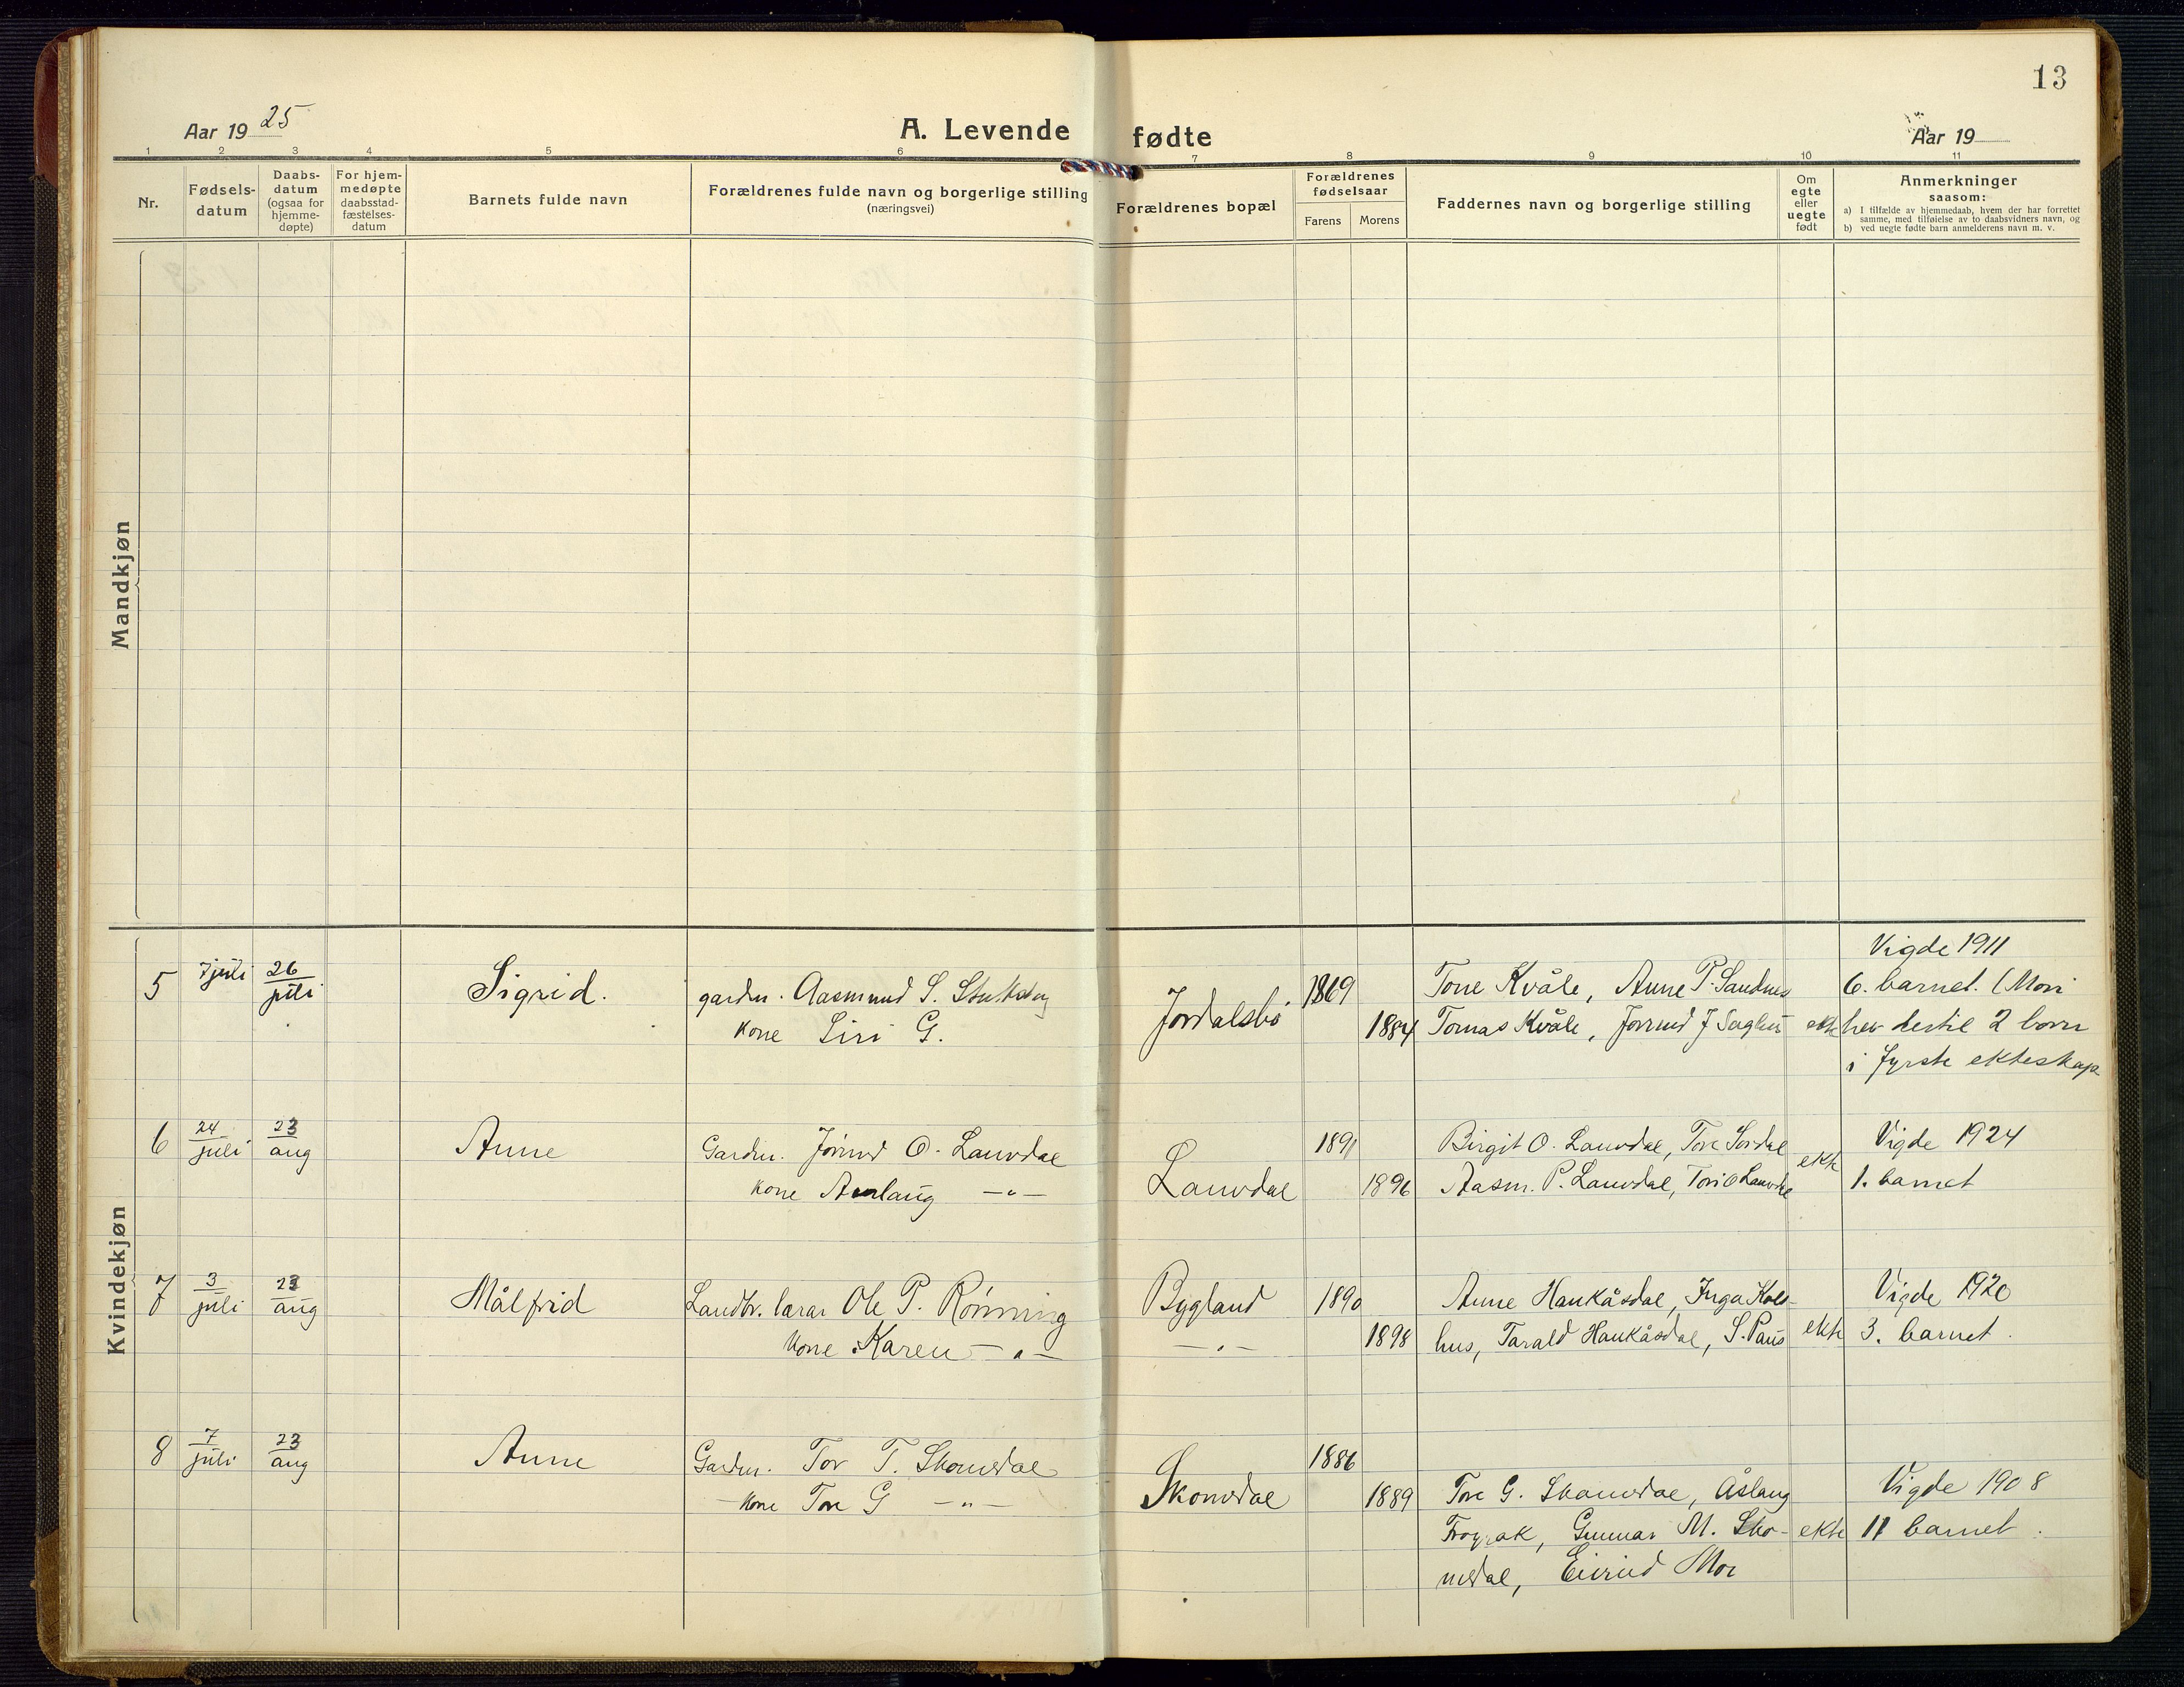 13
Aar 19 25
A. Levende fødte
Aar 19
1 2 3 4 5 6 7 8 9 10 11
Nr.
Fødsels-
datum
Daabs-
datum
(ogsaa for
hjemme-
døpte)
For hjem-
medøpte
daabsstad-
fæstelses-
datum
Barnets fulde navn
Forældrenes fulde navn og borgerlige stilling
(næringsvei)
Forældrenes bopæl
Forældrenes
fødselsaar
Farens Morens
Faddernes navn og borgerlige stilling
Om
egte
eller
uegte
født
Anmerkninger
saasom:
a) I tilfælde av hjemmedaab, hvem der har forrettet
samme, med tilføielse av to daabsvidners navn, og
b) ved uegte fødte barn anmelderens navn m. v.
Mandkjøn
Kvindekjøn
Vigde 1911
5 7 juli 26 juli Sigrid. gardm. Aasmund S. Jordalsbø 1869 Tone Kvåle, Anne P. Sandnes 6. barnet. (Mori
kone Siri G. 1884 Tomas Kvåle, Jorund J ekte hev hertil 2 born
i fyrste ekteskap
6 24 juli 23 aug Anne Gardm. Jørund O. Lauvdal Lauvdal 1891 Birgit O. Lauvdal, Tore Sordal ekte Vigde 1924
kone Aaslaug —"— 1896 Aasm. P. Lauvdal, Tori O Lauvdal 1. barnet
7 3 juli 23 aug Målfrid Landbr. lærar Ole P. Rönning Bygland 1890 Anne Haukåsdal, Inga Kols- Vigde 1920
kone Karen —"— —"— 1898 hus, Tarald Haukåsdal, S. Paus ekte 3. barnet.
8 7 juli 23 aug Anne Gardm. Tor T. Skomedal Skomedal 1886
kone Tore G —"— 1889 Tore G. Skomedal, Åslaug Vigde 1908
Froysak, Gunnar M. Sko- ekte 11 barnet.
medal, Eivind Moi